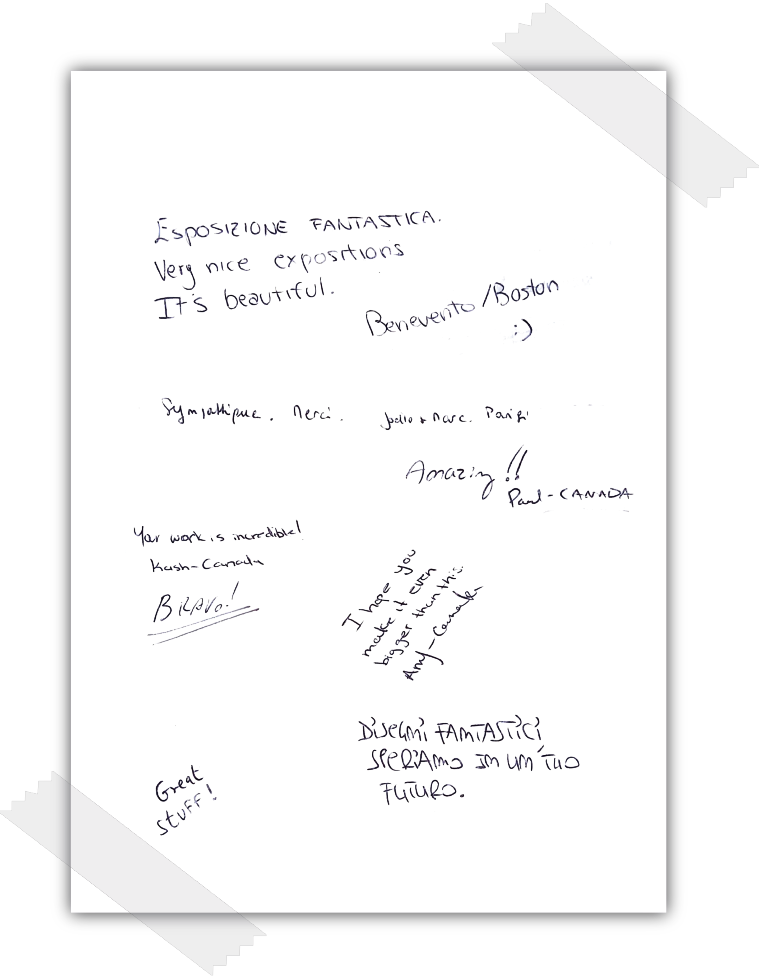 ESPOSIZIONE FANTASTICA.
Very nice expositions
It's beautiful.
Benevento/Boston
:)
Sympathique. Merci.
+ Marc. Parigi
Amazing!!
Paul-CANADA
Your work is incredible!
Kash-Canada
BRAVO!
I hope you
make it even
bigger than this
Amy-Canada
DISEGNI FANTASTICI
SPERIAMO IN UN TUO
FUTURO.
Great
stuff!